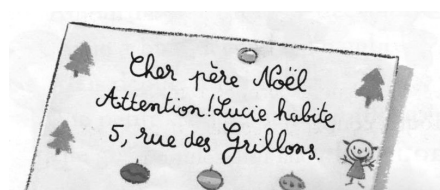 Cher père Noël
Attention! Lucie habite
5, rue des Grillons.